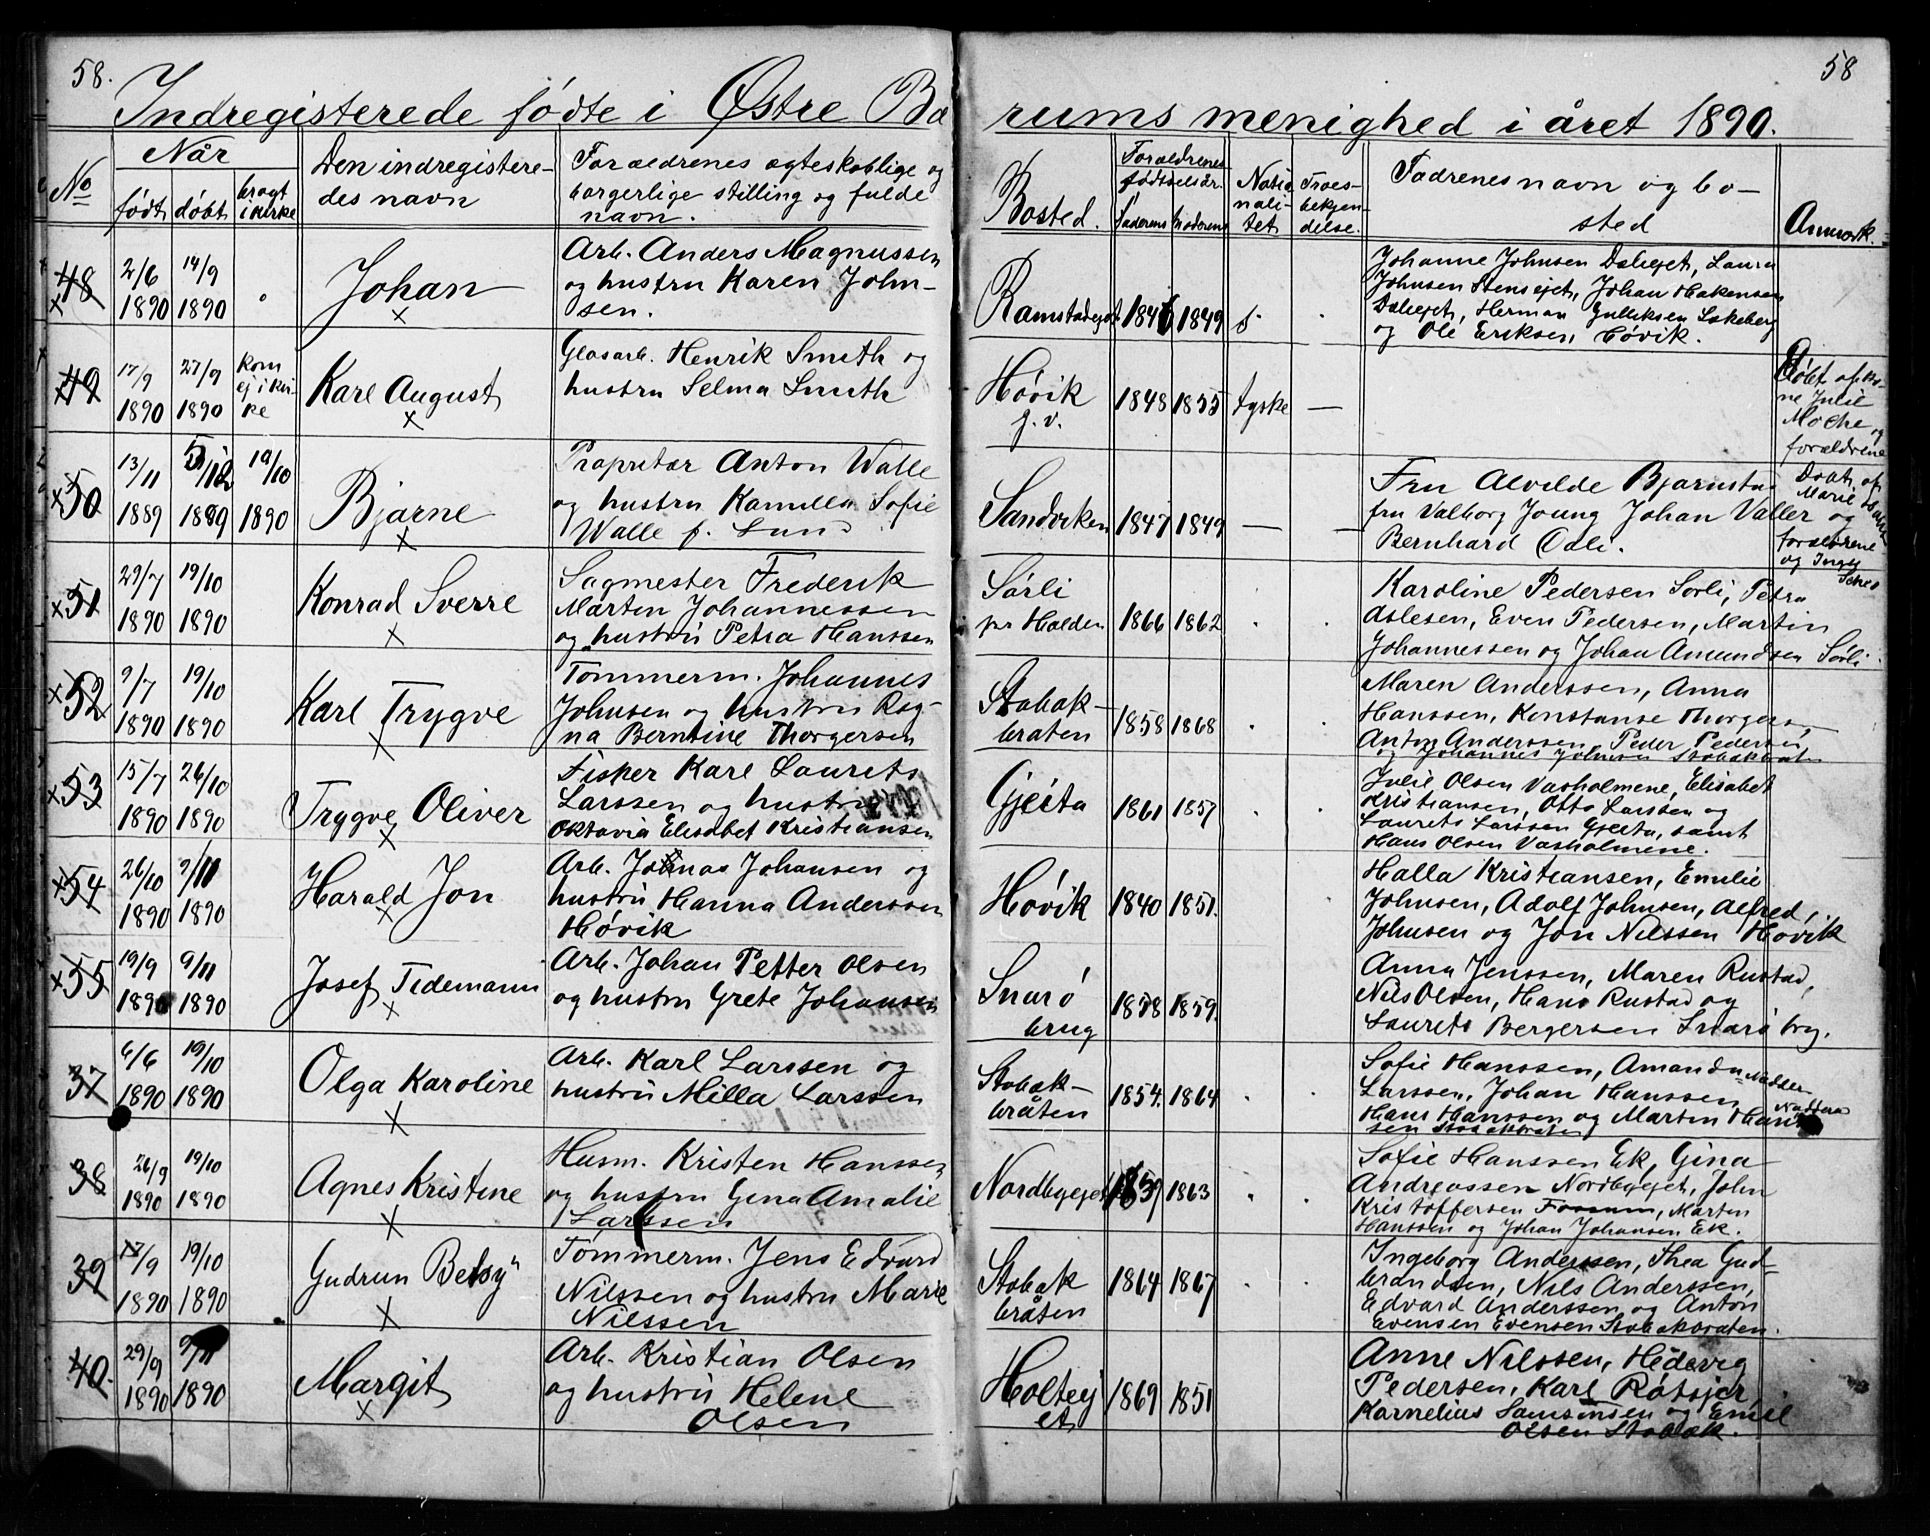 58.
58
Indregisterede fødte i Østre Bærums menighed i året 1890.
No
Når
født
døbt
bragt i kirke
Den indregisteredes navn
Forældrenes ægteskablige og
borgerlige stilling og fulde
navn.
Bosted.
Forældrenes
fødselsår.
Faderens
Moderens
Nationalitet
Troesbekjendelse.
Fadrenes navn og bosted
Anmærk.
48
2/6 1890
14/9 1890
Johan
Arb. Anders Magnussen
og hustru Karen John-
sen.
Ramstadejet
1846
1849
Johanne Johnsen Dalejet, Laura
Johnsen Stensejet, Johan Hakensen
Dalejet, Herman Gulliksen
og Ole Eriksen, Høvik.
49
17/9 1890
27/9 1890
kom
ej i kir-
ke
Karl August
Glasarb. Henrik Smith og
hustru Selma Smith
Høvik
g. v.
1848
1855
tyske
—
Døbt af ko-
ne Julie
og
forældrene
50
13/11 1889
5/12 1889
19/10 1890
Bjarne
Proprietær Anton Walle
og hustru Kamilla Sofie
Walle f. Lund
Sandviken
1847
1849
—
—
Fru Alvilde Bjarnsta
fru Valborg Joung Johan Valler og
Bernhard Dæli.
Døbt af
Marie
forældrene
og
51
29/7 1890
19/10 1890
Konrad Sverre
Sagmester Frederik
Marten Johannessen
og hustru Petra Hanssen
Sørli
pr Halden
1866
1862
Karoline Pedersen Sørli, Petra
Aslesen, Even Pedersen, Martin
Johannessen og Johan Amundsen Sørli.
52
9/7 1890
19/10 1890
Karl Trygve
Tømmerm. Johannes
Johnsen og hustru Rag-
na Berntine Thorgersen
Stabak-
braten
1858
1868
Maren Anderssen, Anna
Hanssen, Konstanse Thorgersen
Anton Anderssen, Peder Pedersen
og Johannes Johnsen Stabakbraten
53
15/7 1890
26/10 1890
Trygve Oliver
Fisker Karl Laurets
Larssen og hustru
Oktavia Elisabet Kristiansen
Gjeita
1861
1857
Julie Olsen Vasholmene, Elisabet
Kristiansen, Otto Larssen og
Laurets Larssen Gjeita, samt
Hans Olsen Vasholmene.
54
26/10 1890
9/11 1890
Harald Jon
Arb. Jonas Johansen og
hustru Hanna Anderssen
Høvik
Høvik
1840
1851.
Halla Kristiansen, Emilie
Johnsen, Adolf Johnsen, Alfred
Johnsen og Jon Nilssen Høvik
55
19/9 1890
9/11 1890
Josef Tidemann
Arb. Johan Petter Olsen
og hustru Grete Johansen
Snarø
brug
1858
1859.
Anna Jenssen, Maren Rustad,
Nils Olsen, Hans Rustad og
Laurets Bergersen Snarø brg.
37
6/6 1890
19/10 1890
Olga Karoline
Arb. Karl Larssen og
hustru Milla Larssen
Stabæk-
bråten
1854.
1864
Sofie Hanssen, Amanda
Larssen, Johan Hanssen
Hans Hanssen og Marten Hans-
sen Stabækbraten
38
26/9 1890
19/10 1890
Agnes Kristine
Husm. Kristen Hanssen
og hustru Gina Amalie
Larssen
Nordbyejet
1859
1863
Sofie Hanssen Ek, Gina
Andreassen Nordbyejet, John
Kristoffersen Fossum, Marten
Hanssen og Johan Johansen Ek.
39
17/9 1890
19/10 1890
Gudrun Betsy
Tømmerm. Jens Edvard
Nilssen og hustru Marie
Nilssen
Stabæk
bråten
1864
1867
Ingeborg Anderssen, Thea Gud-
brandsen, Nils Anderssen,
Edvard Anderssen og Anton
Evensen Evensen Stabækbraten.
40.
29/9 1890
9/11 1890
Margit
Arb. Kristian Olsen
og hustru Helene
Olsen
Holtej
et
1869
1851
Anne Nilssen, Hedevig
Pedersen, Karl
Karnelius Samsonsen og Emil
Olsen Stabæk.